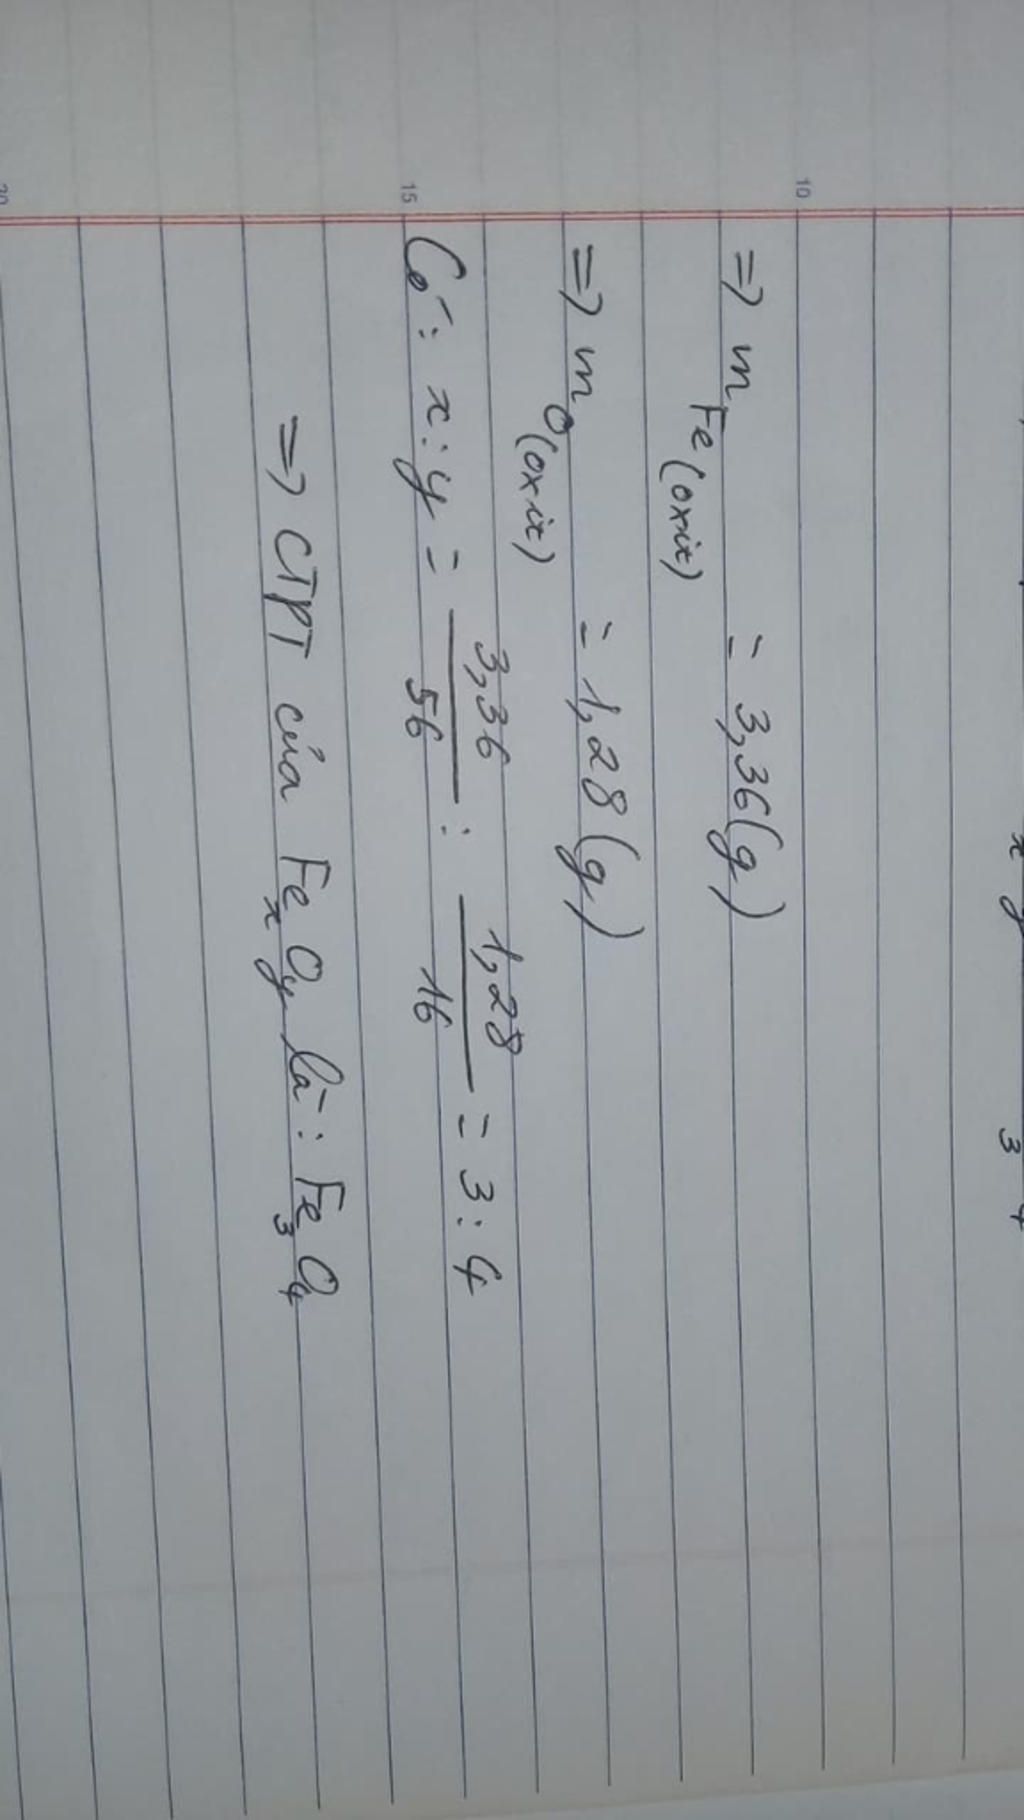 x y 3 4
10
=> m Fe (oxit) = 3,36 (g)
=> m O (oxit) = 1,28 (g)
15
Có: x : y = 3,36/56 : 1,28/16 = 3 : 4
=> CTPT của FexOy là: Fe3O4
20